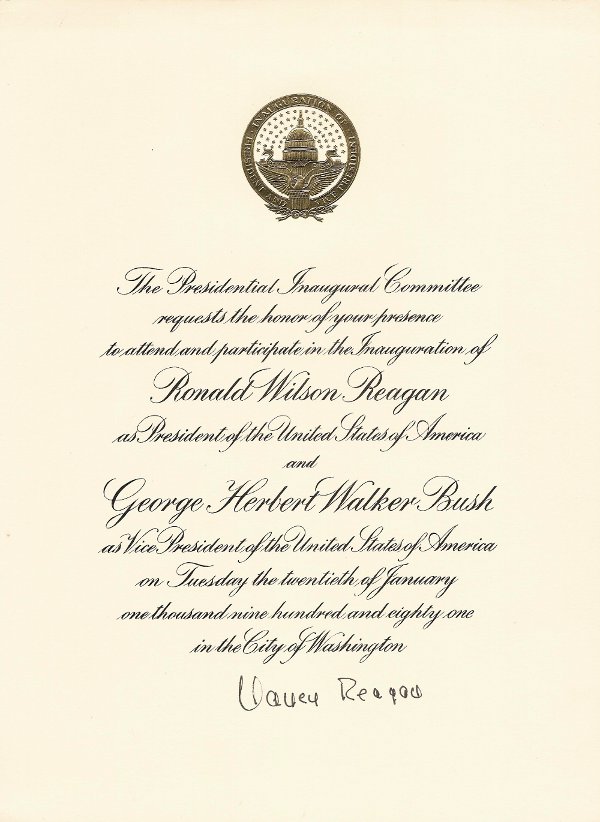 INAUGURATION OF
PRESIDENT AND
VICE PRESIDENT
The Presidential Inaugural Committee
requests the honor of your presence
to attend and participate in the Inauguration of
Ronald Wilson Reagan
as President of the United States of America
and
George Herbert Walker Bush
as Vice President of the United States of America
on Tuesday the twentieth of January
one thousand nine hundred and eighty one
in the City of Washington
Nancy Reagan